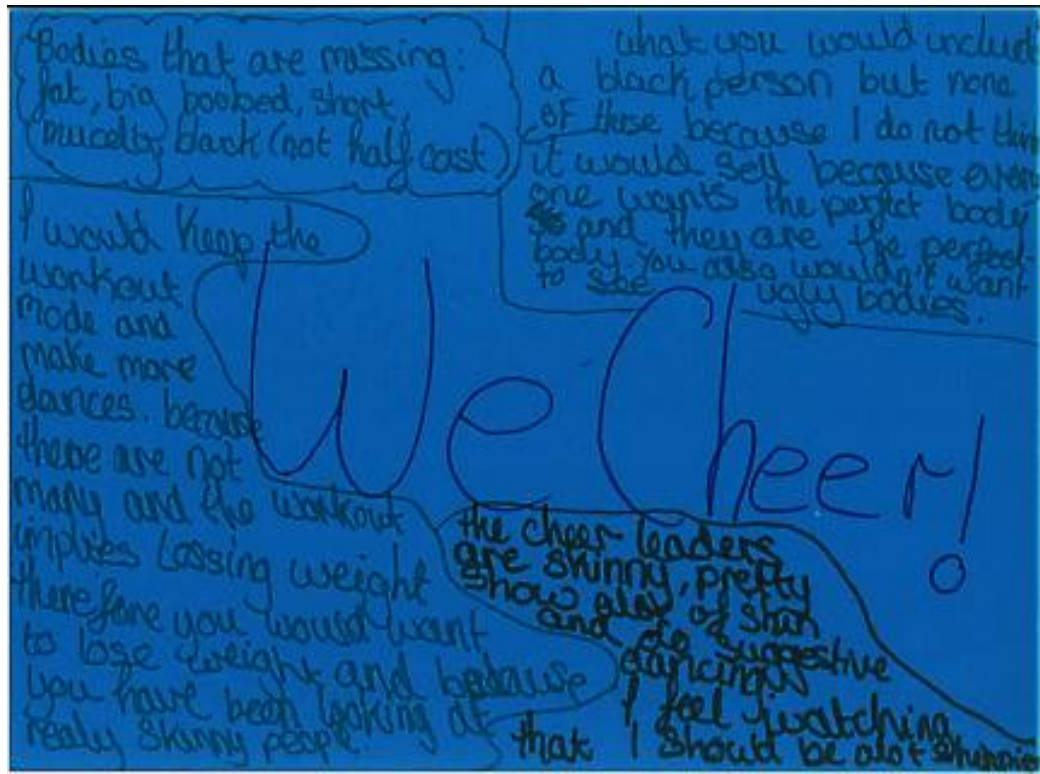 Bodies that are missing:
fat, big boobed, short,
black (not half cast)
what you would include
a black person but none
of these because I do not think
it would sell because every
one wants the perfect body
and they are the perfect
body you also wouldn't want
to see ugly bodies.
I would keep the
workout
mode and
make more
dances. because
there are not
many and the workout
implies lossing weight
therefore you would want
to lose weight and because
you have been looking at
realy skinny people.
We Cheer!
the cheer leaders
are skinny, pretty
show alot of skin
and do suggestive
dancing
I feel watching
that I should be alot